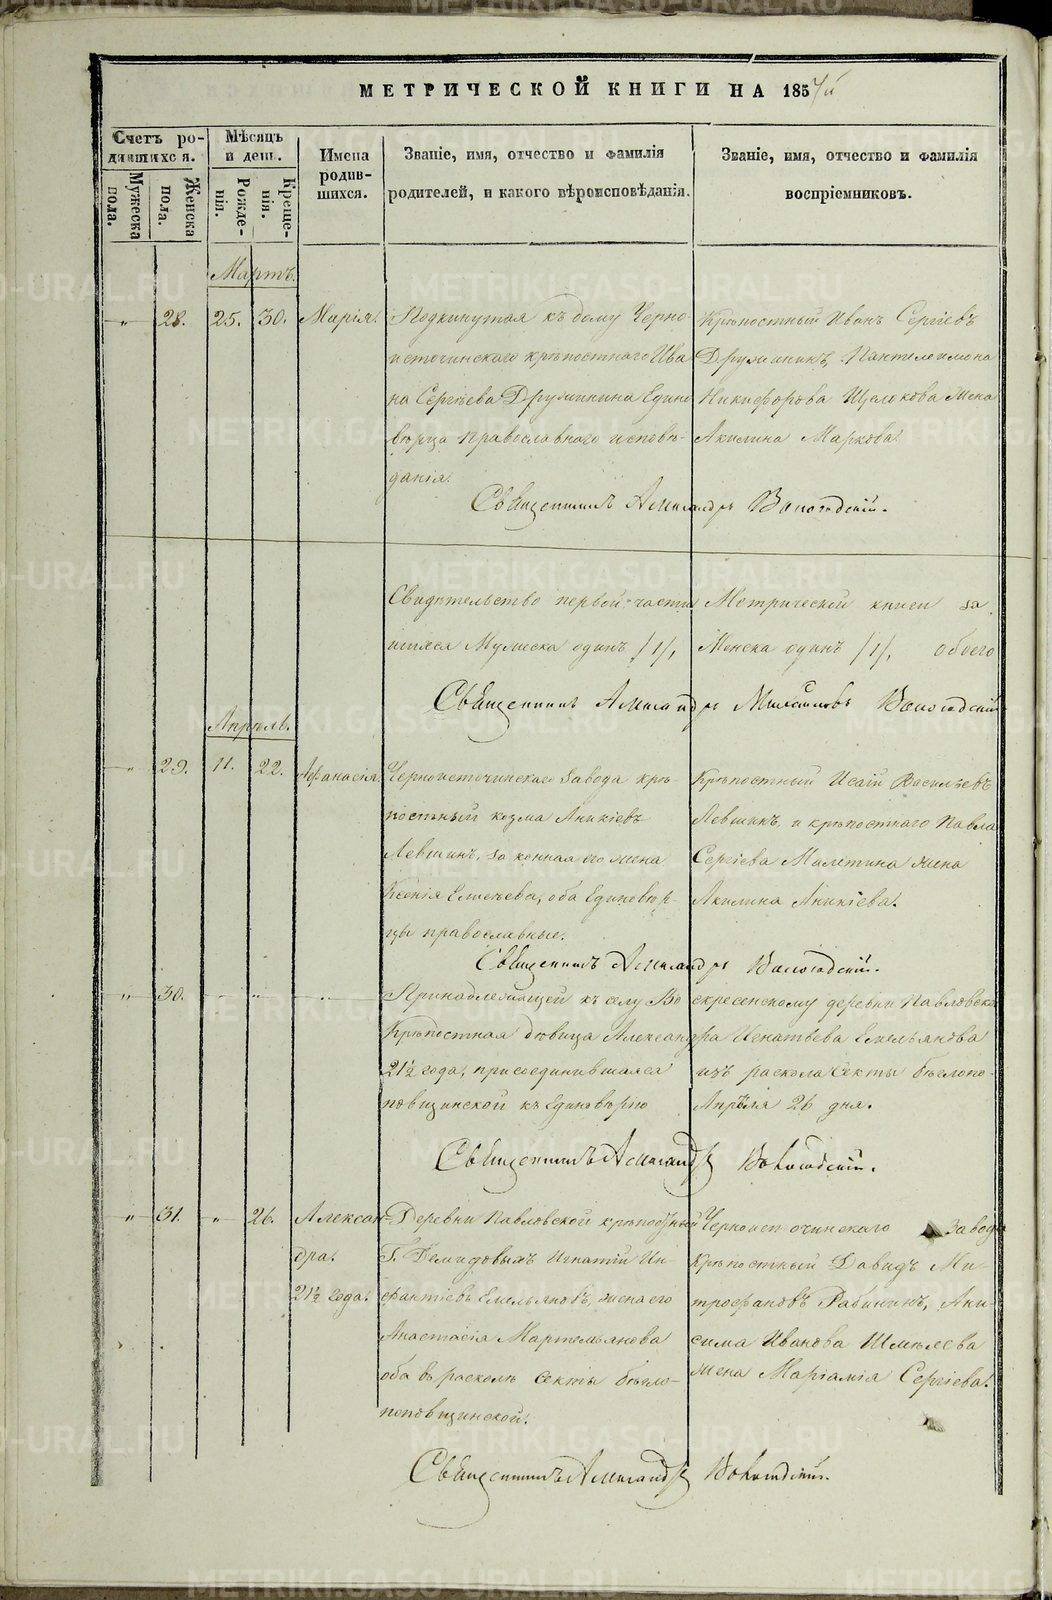 МЕТРИЧЕСКОЙ КНИГИ НА 1857й
Счетъ ро-
дившихся.
Мужеска
пола.
Женска
пола.
Мѣсяцъ
и день.
Рожде-
нія.
Креще-
нія.
Имена
родив-
шихся.
Званіе, имя, отчество и фамилія
родителей, и какого вѣроисповѣданія.
Званіе, имя, отчество и фамилія
воспріемниковъ.
Мартъ.
28. 25. 30. Марія.
Подкинутая къ дому Черно-
источинскаго крѣпостнаго Ива
на Сергѣева Дружинина Едино
вѣрца православнаго исповѣ-
данія.
Крѣпостный Иванъ Сергѣевъ
Дружининъ, Пантелеимона
Никифорова Щелокова жена
Акилина Маркова.
Священникъ Александръ Вологодскій.
Свидѣтельство первой части Метрической книги за
шихся Мужеска одинъ /1/, Женска одинъ /1/, обоего
Священникъ Александръ Михайловъ Вологодскій
Апрѣль.
29. 11. 22. Афанасія
Черноисточинскаго завода крѣ-
постный козма Аникіевъ
Левшинъ, законная его жена
Ксенія Елисѣева, оба Единовѣр-
цы православные.
Крѣпостный Исаій Васильевъ
Левшинъ, и крѣпостнаго Павла
Сергѣева Малетина жена
Акилина Аникіева.
Священникъ Александръ Вологодскій.
30.
Принадлежащей къ селу Воскресенскому деревни Павловской
Крѣпостная дѣвица Александра Игнатьева Емельянова
21½ года, присоединившаяся изъ раскола Секты бѣглопо-
повщинской къ Единовѣрію Апрѣля 26 дня.
Священникъ Александръ Вологодскій.
31. 26. Алексан-
дра.
21½ года.
Деревни Павловской крѣпостный
Г. Демидовыхъ Игнатій Ни-
фантіевъ Емельяновъ, жена его
Анастасія Мартемьянова
оба въ расколѣ Секты бѣгло-
поповщинской.
Черноисточинскаго завода
Крѣпостный Давидъ Ми-
трофановъ Рябининъ, Ани-
сима Иванова Шмелева
жена Маріамія Сергѣева.
Священникъ Александръ Вологодскій.
METRIKI.GASO-URAL.RU